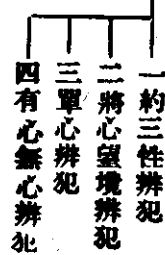 一約三性辨犯
二將心望境辨犯
三單心辨犯
四有心無心辨犯